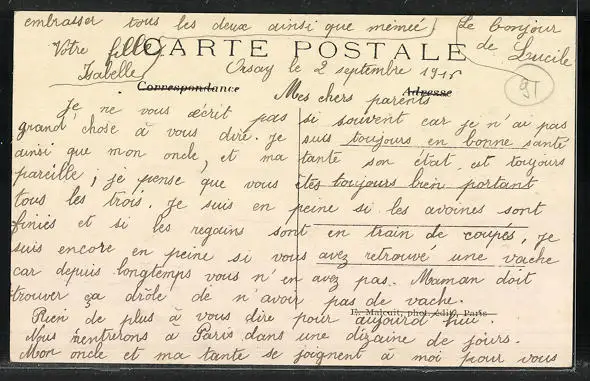 embrasser tous les deux ainsi que mémée
Votre fille
Isabelle
Le bonjour
de Lucile
CARTE POSTALE
91
Orsay le 2 septembre
Correspondance
Adresse
Mes chers parents
Je ne vous écrit pas si souvent car je n'ai pas
grand chose à vous dire. Je suis toujours en bonne santé
ainsi que mon oncle, et ma tante son état est toujours
pareille; je pense que vous êtes toujours bien portant
tous les trois. Je suis en peine si les avoines sont
finies et si les regains sont en train de coupés, je
suis encore en peine si vous avez retrouvé une vache
car depuis longtemps vous n'en avez pas. Maman doit
trouver ça drôle de n'avoir pas de vache.
E. Malcuit, phot. édit. Paris
Rien de plus à vous dire pour aujourd'hui.
Nous rentrerons à Paris dans une dizaine de jours.
Mon oncle et ma tante se joignent à moi pour vous